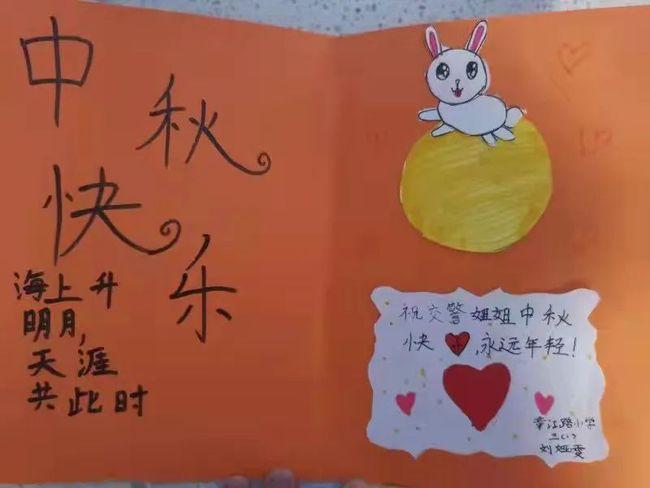 中秋
快乐
海上升
明月,
天涯
共此时
祝交警姐姐中秋
快乐,永远年轻!
章江路小学
三(1)
刘娅雯